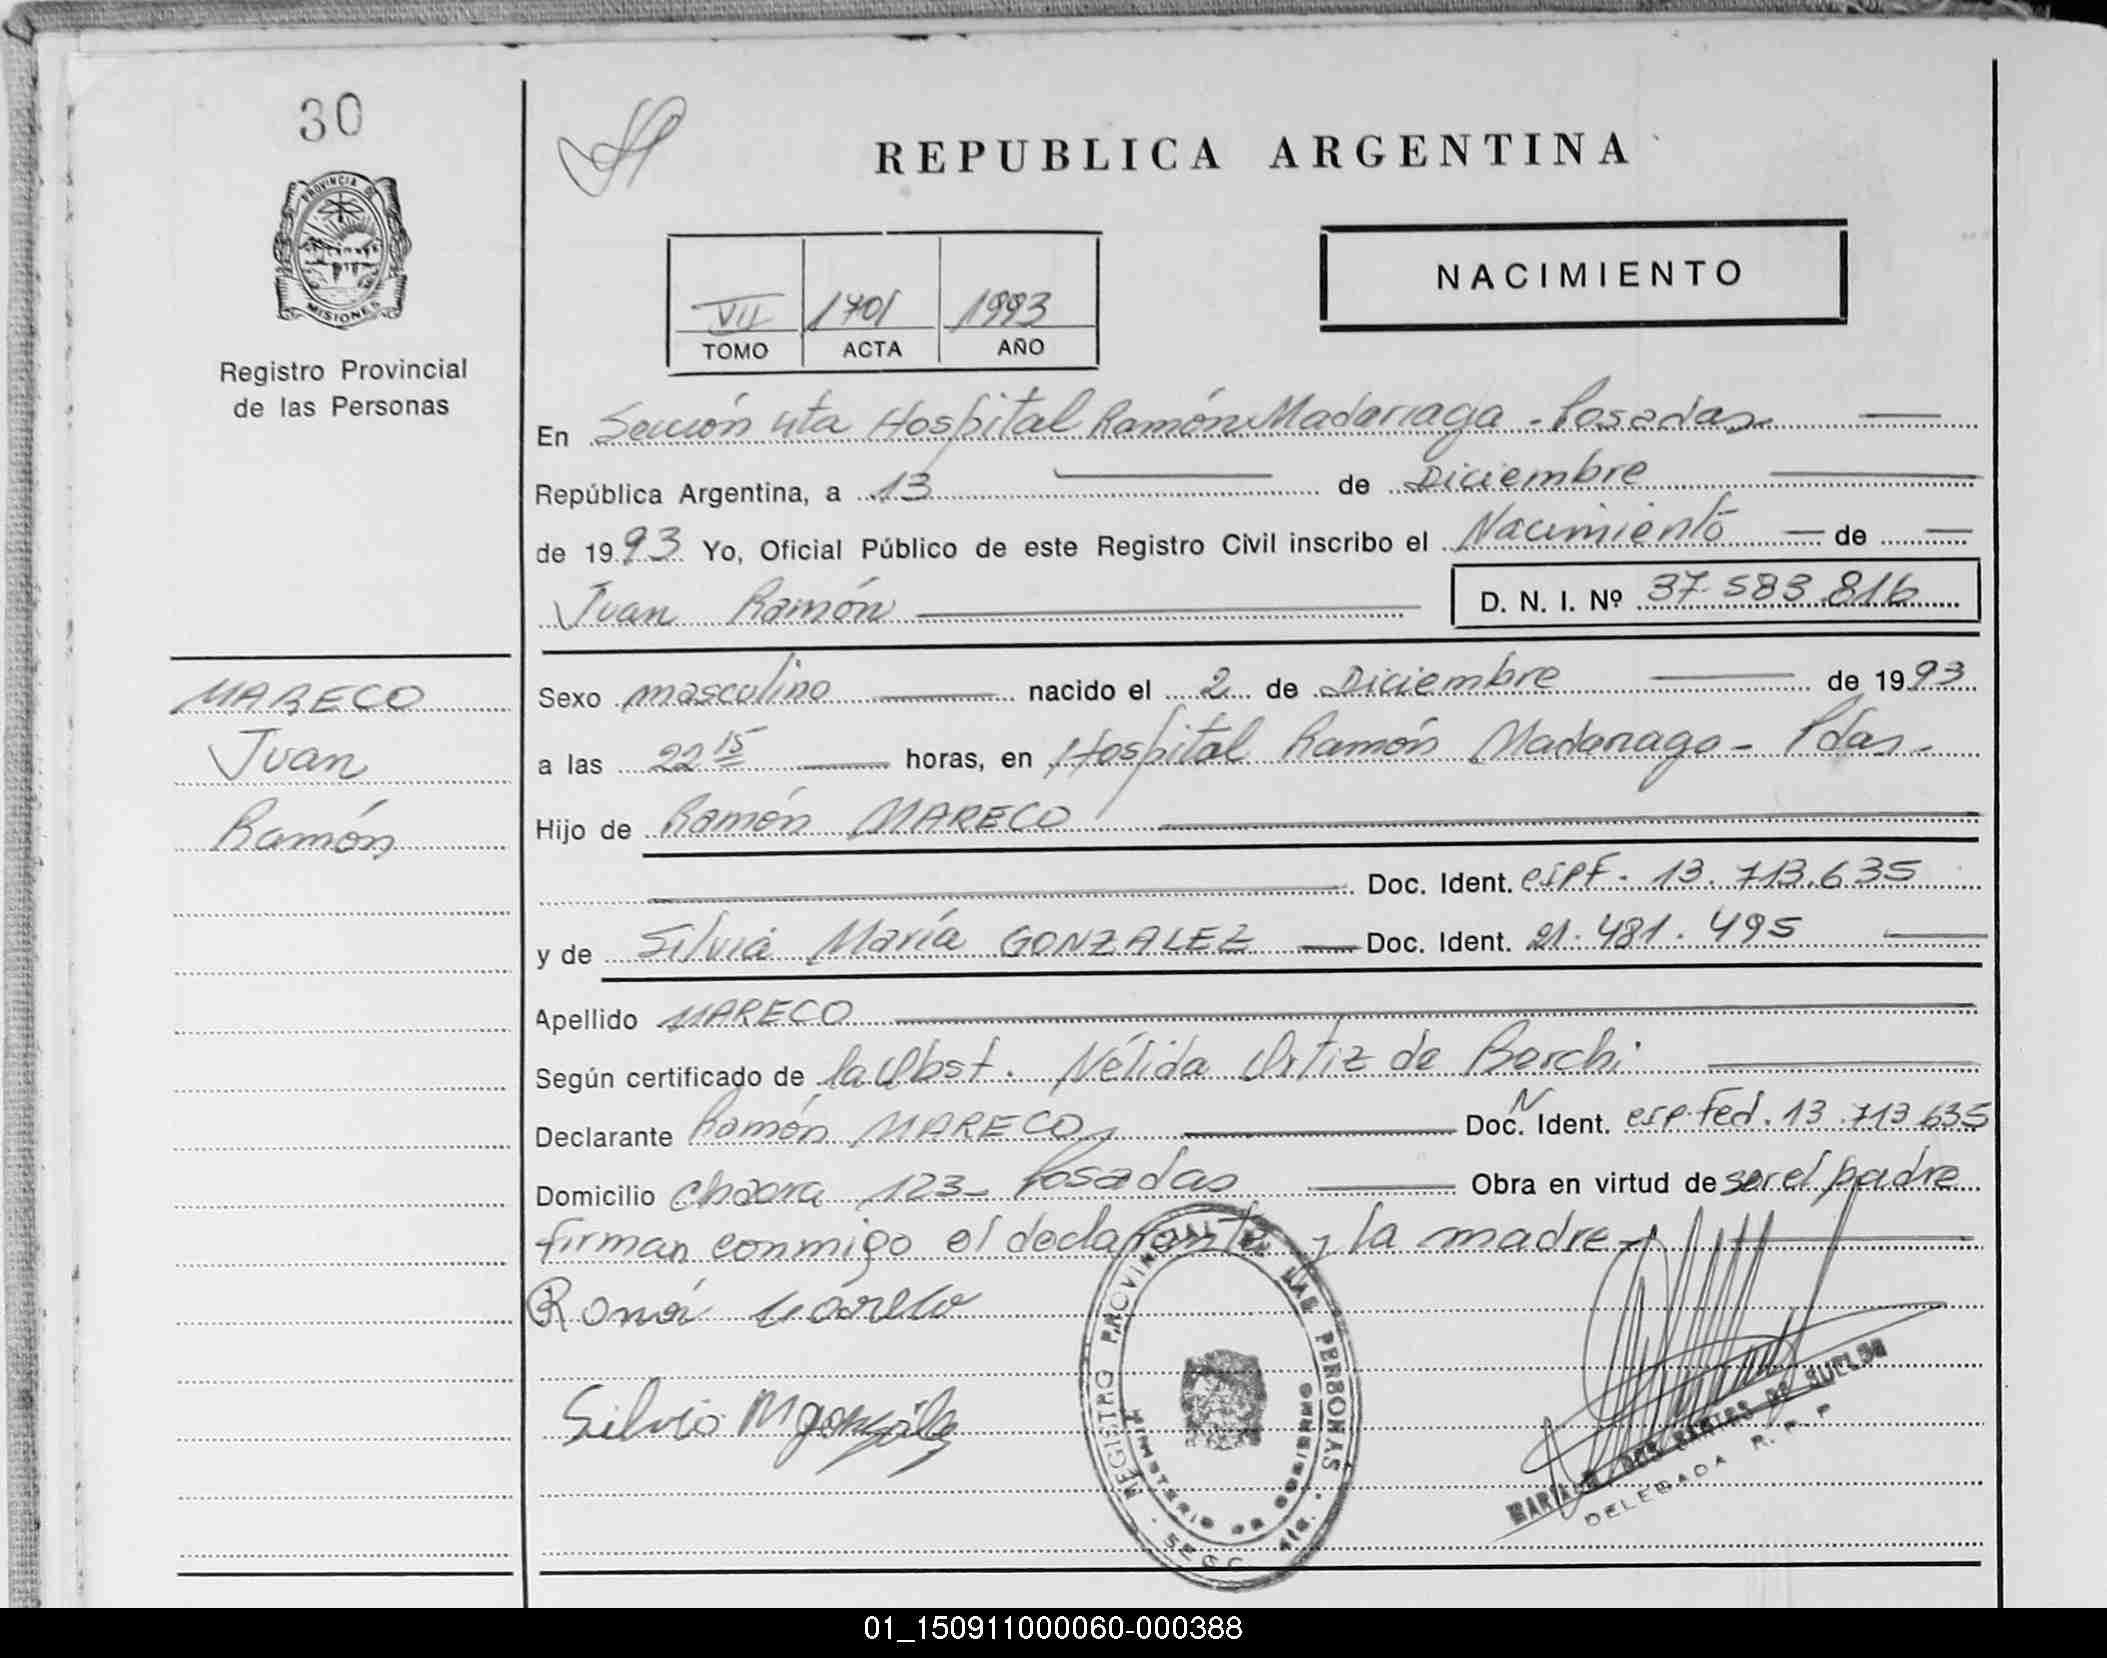 30
PROVINCIA DE
MISIONES
Registro Provincial
de las Personas
MARECO
Juan
Ramón
REPUBLICA ARGENTINA
NACIMIENTO
VII 1701 1993
TOMO ACTA AÑO
En Sección 4ta Hospital Ramón Madariaga - Posadas
República Argentina, a 13 de Diciembre
de 1993 Yo, Oficial Público de este Registro Civil inscribo el Nacimiento de
Juan Ramón D. N. I. Nº 37.583.816
Sexo masculino nacido el 2 de Diciembre de 1993
a las 22 15 horas, en Hospital Ramón Madariaga - Pdas.
Hijo de Ramón MARECO
Doc. Ident. espF. 13.713.635
y de Silvia María GONZALEZ Doc. Ident. 21.481.495
Apellido MARECO
Según certificado de la Obst. Nélida Ortiz de Borchi
Declarante Ramón MARECO Doc. N Ident. esp. Fed. 13.713.635
Domicilio Chacra 123 - Posadas Obra en virtud de ser el padre
firman conmigo el declarante y la madre
Silvia M Gonzalez
REGISTRO PROVINCIAL DE LAS PERSONAS
MINISTERIO DE GOBIERNO
DOS SANTOS DE
DELEGADA R. P. P
01_150911000060-000388